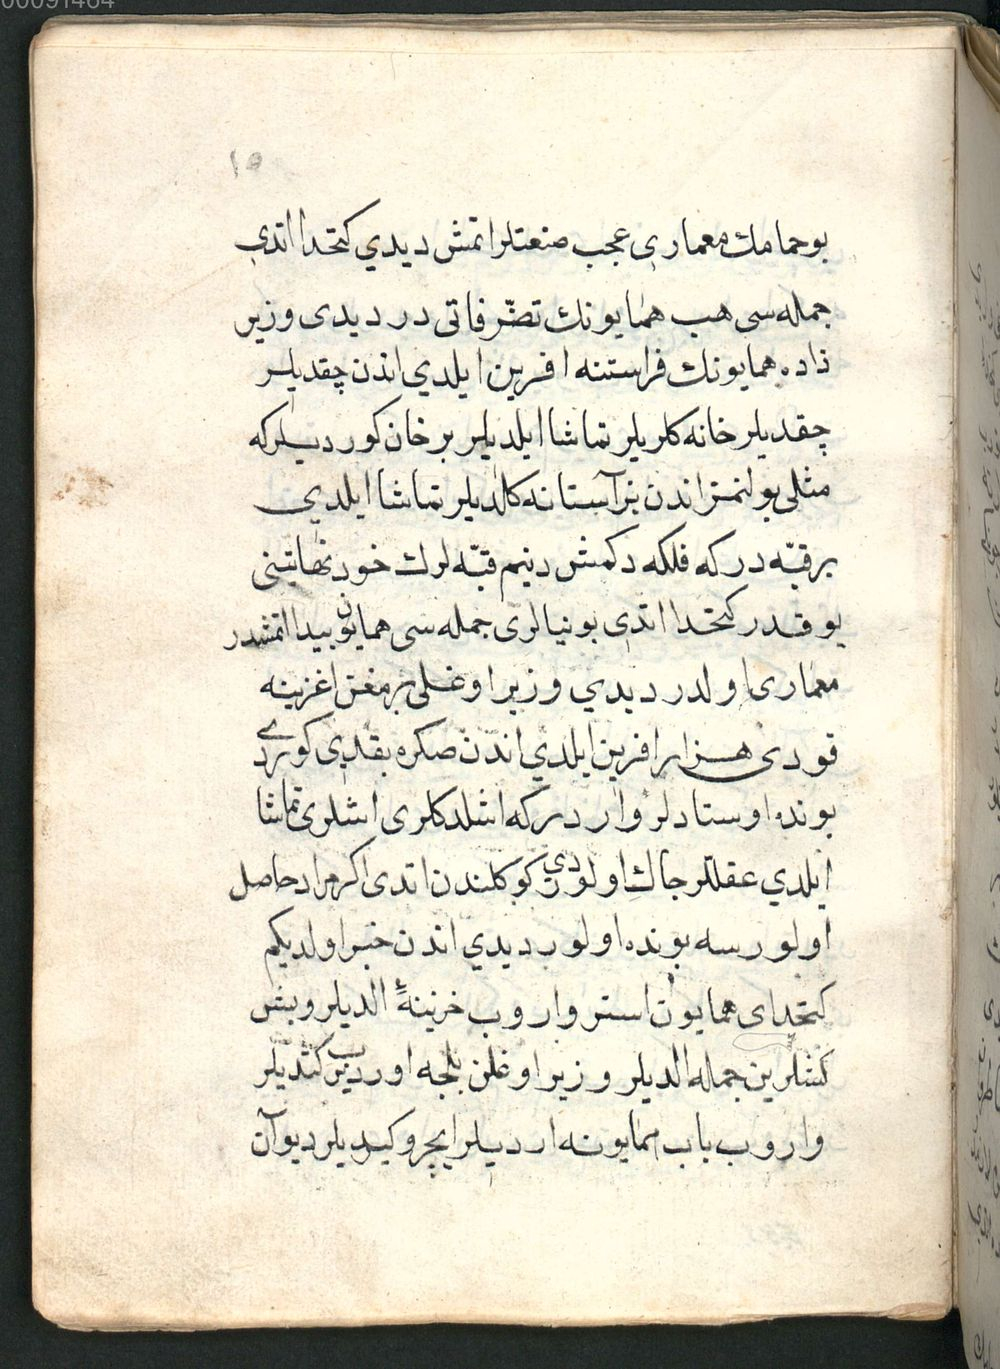 00091464
١٥
بو حمامك معماری عجب صنعتلر اتمش ديدي كتخدا اتدی
جمله سی هب همايونك تصرّفاتی در ديدی وزير
زاده همايونك فراستنه افرين ايلدي اندن چقديلر
چقديلر خانه كلديلر تماشا ايلديلر بر خان كورديلر كه
مثلی بولنمز اندن بر آستانه كلديلر تماشا ايلدي
بر قبّه در كه فلكه دكمش دينم قبّه لرك خود نهايتنی
يوقدر كتخدا اتدی بو بنالری جمله سی همايون پيدا اتمشدر
معماری اولدر ديدي وزير اوغلی برمغن اغزينه
قودی هزار افرين ايلدي اندن صكره بقدی كوردی
بونده اوستادلر وار در كه اشلدكلری اشلری تماشا
ايلدي عقللر چاك اولوردی كوكلندن اتدی اكر مراد حاصل
اولورسه بونده اولور ديدي اندن خبر اولديكم
كتخدای همايون استر واروب خزينهٔ الديلر و بشر
كشلرين جمله الديلر وزير اوغلن بلجه اوردیلر كتديلر
واروب باب همايونه ارديلر ايچرو كيرديلر ديوان